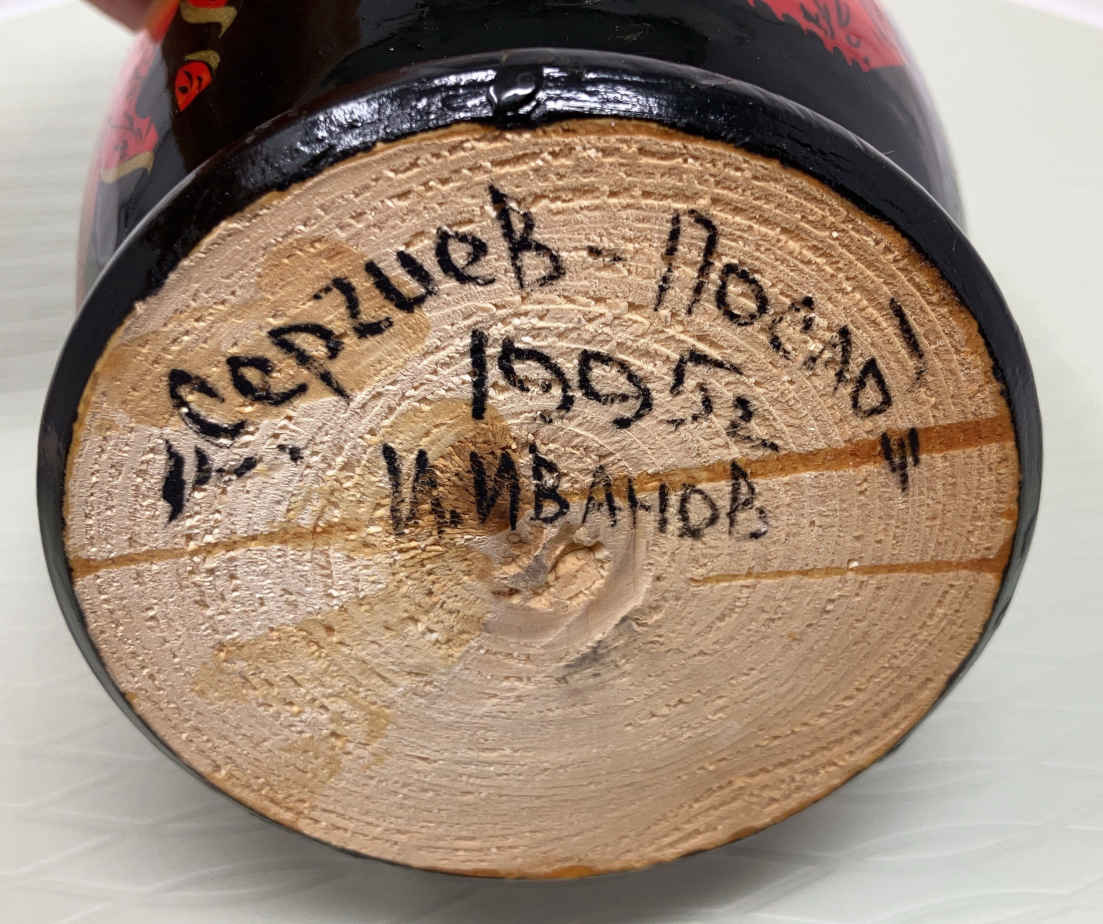 „Сергиев-Посад"
1995г
И.Иванов